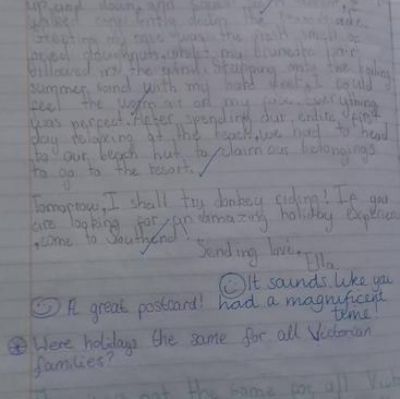 up and down, and
walked confidently down the promenade.
my nose was the fresh smell of
doughnuts, whilst my brunette hair
billowed in the wind. Stepping onto the boiling
summer sand with my feet, I could
feel the warm air on my face. Everything
was perfect. After spending our entire first
day relaxing at the beach, we had to head
to our beach hut to claim our belongings
to go to the resort.
Tomorrow, I shall try donkey riding! If you
are looking for an amazing holiday experience
, come to Southend!
Sending love,
Ella
It sounds like you
A great postcard! had a magnificent
time!
Were holidays the same for all Victorian
families?
not the same for all Vict